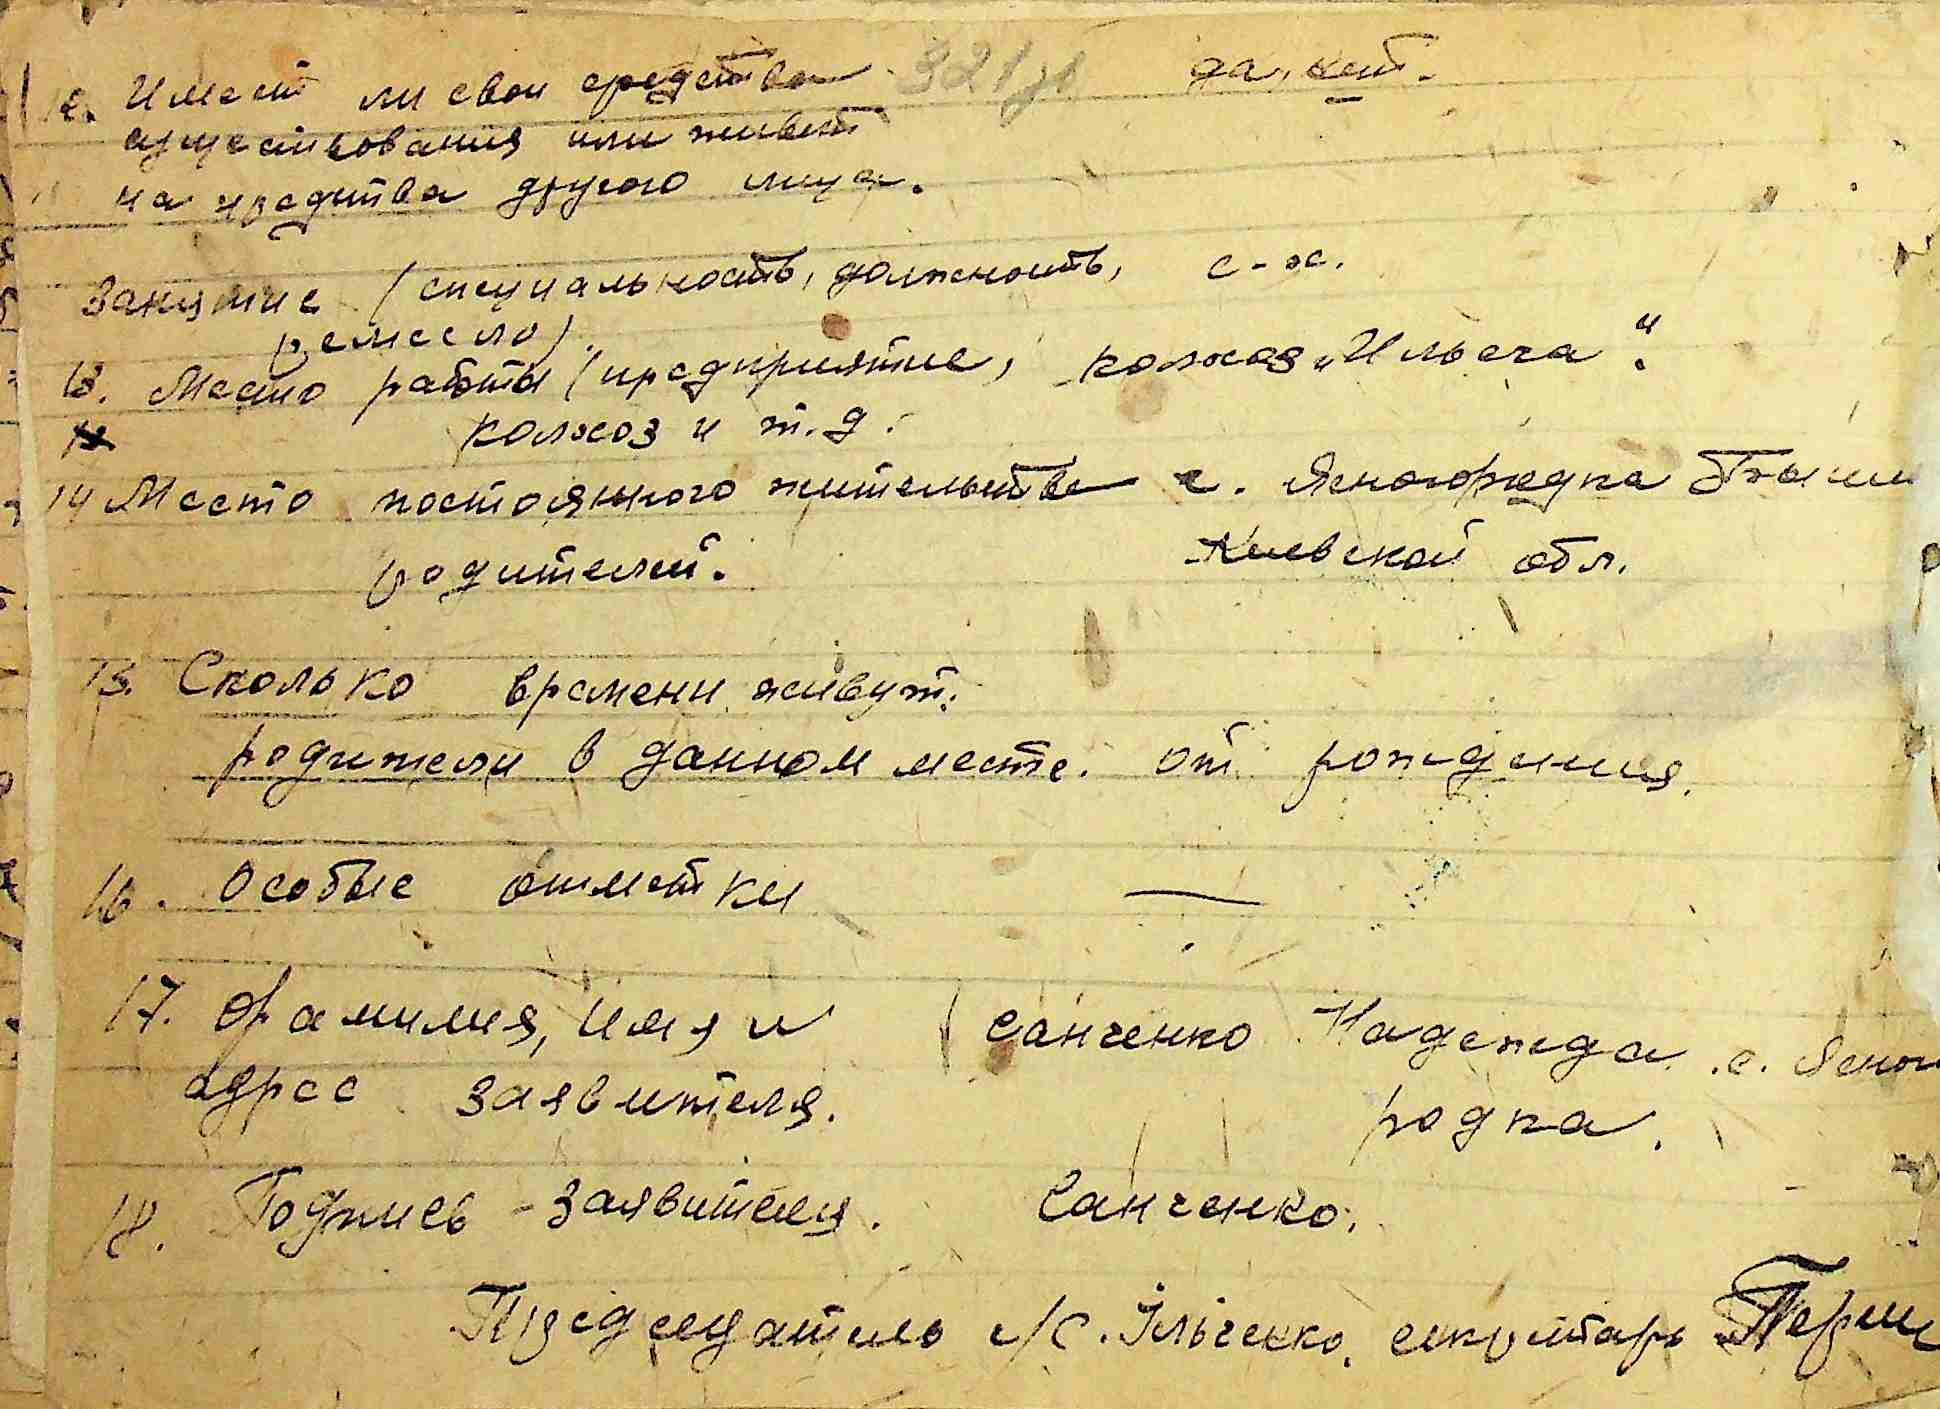 12. Имеет ли свои средства да, нет.
существования или живет
на средства другого лица.
Занятие (специальность, должность, с-х.
ремесло).
13. Место работы (предприятие, колхоз „Ильича“.
колхоз и т.д.
14 Место постоянного жительства с. Ясногородка
родителей. Киевской обл.
15. Сколько времени живут
родители в данном месте. от рождения.
16. Особые отметки —
17. Фамилия, имя и Санченко Надежда с. Ясного
адрес заявителя. родка.
18. Подпись заявителя. Санченко.
Председатель с/с. Ільченко, секретарь